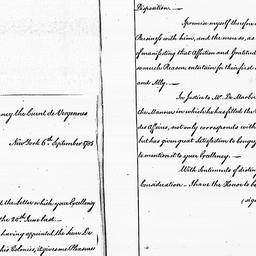 ney the Count de Vergennes
New York 6th September 1785
the Letter which your Excellency
the 25th June last.—
having appointed the Sieur De
his Colonies, it gives me Pleasure
Disposition.—
I promise myself therefore
Business with him, and the more so, as
of manifesting that Affection and Gratitude
so much Reason entertain for their first
and Ally.—
In Justice to Mr. De Marbois
the Manner in which he has filled the
des Affaires, not only corresponds with
but has given great Satisfaction to Congress
to mention it to your Excellency.—
With Sentiments of disting
Consideration— I have the Honor to be
(sign